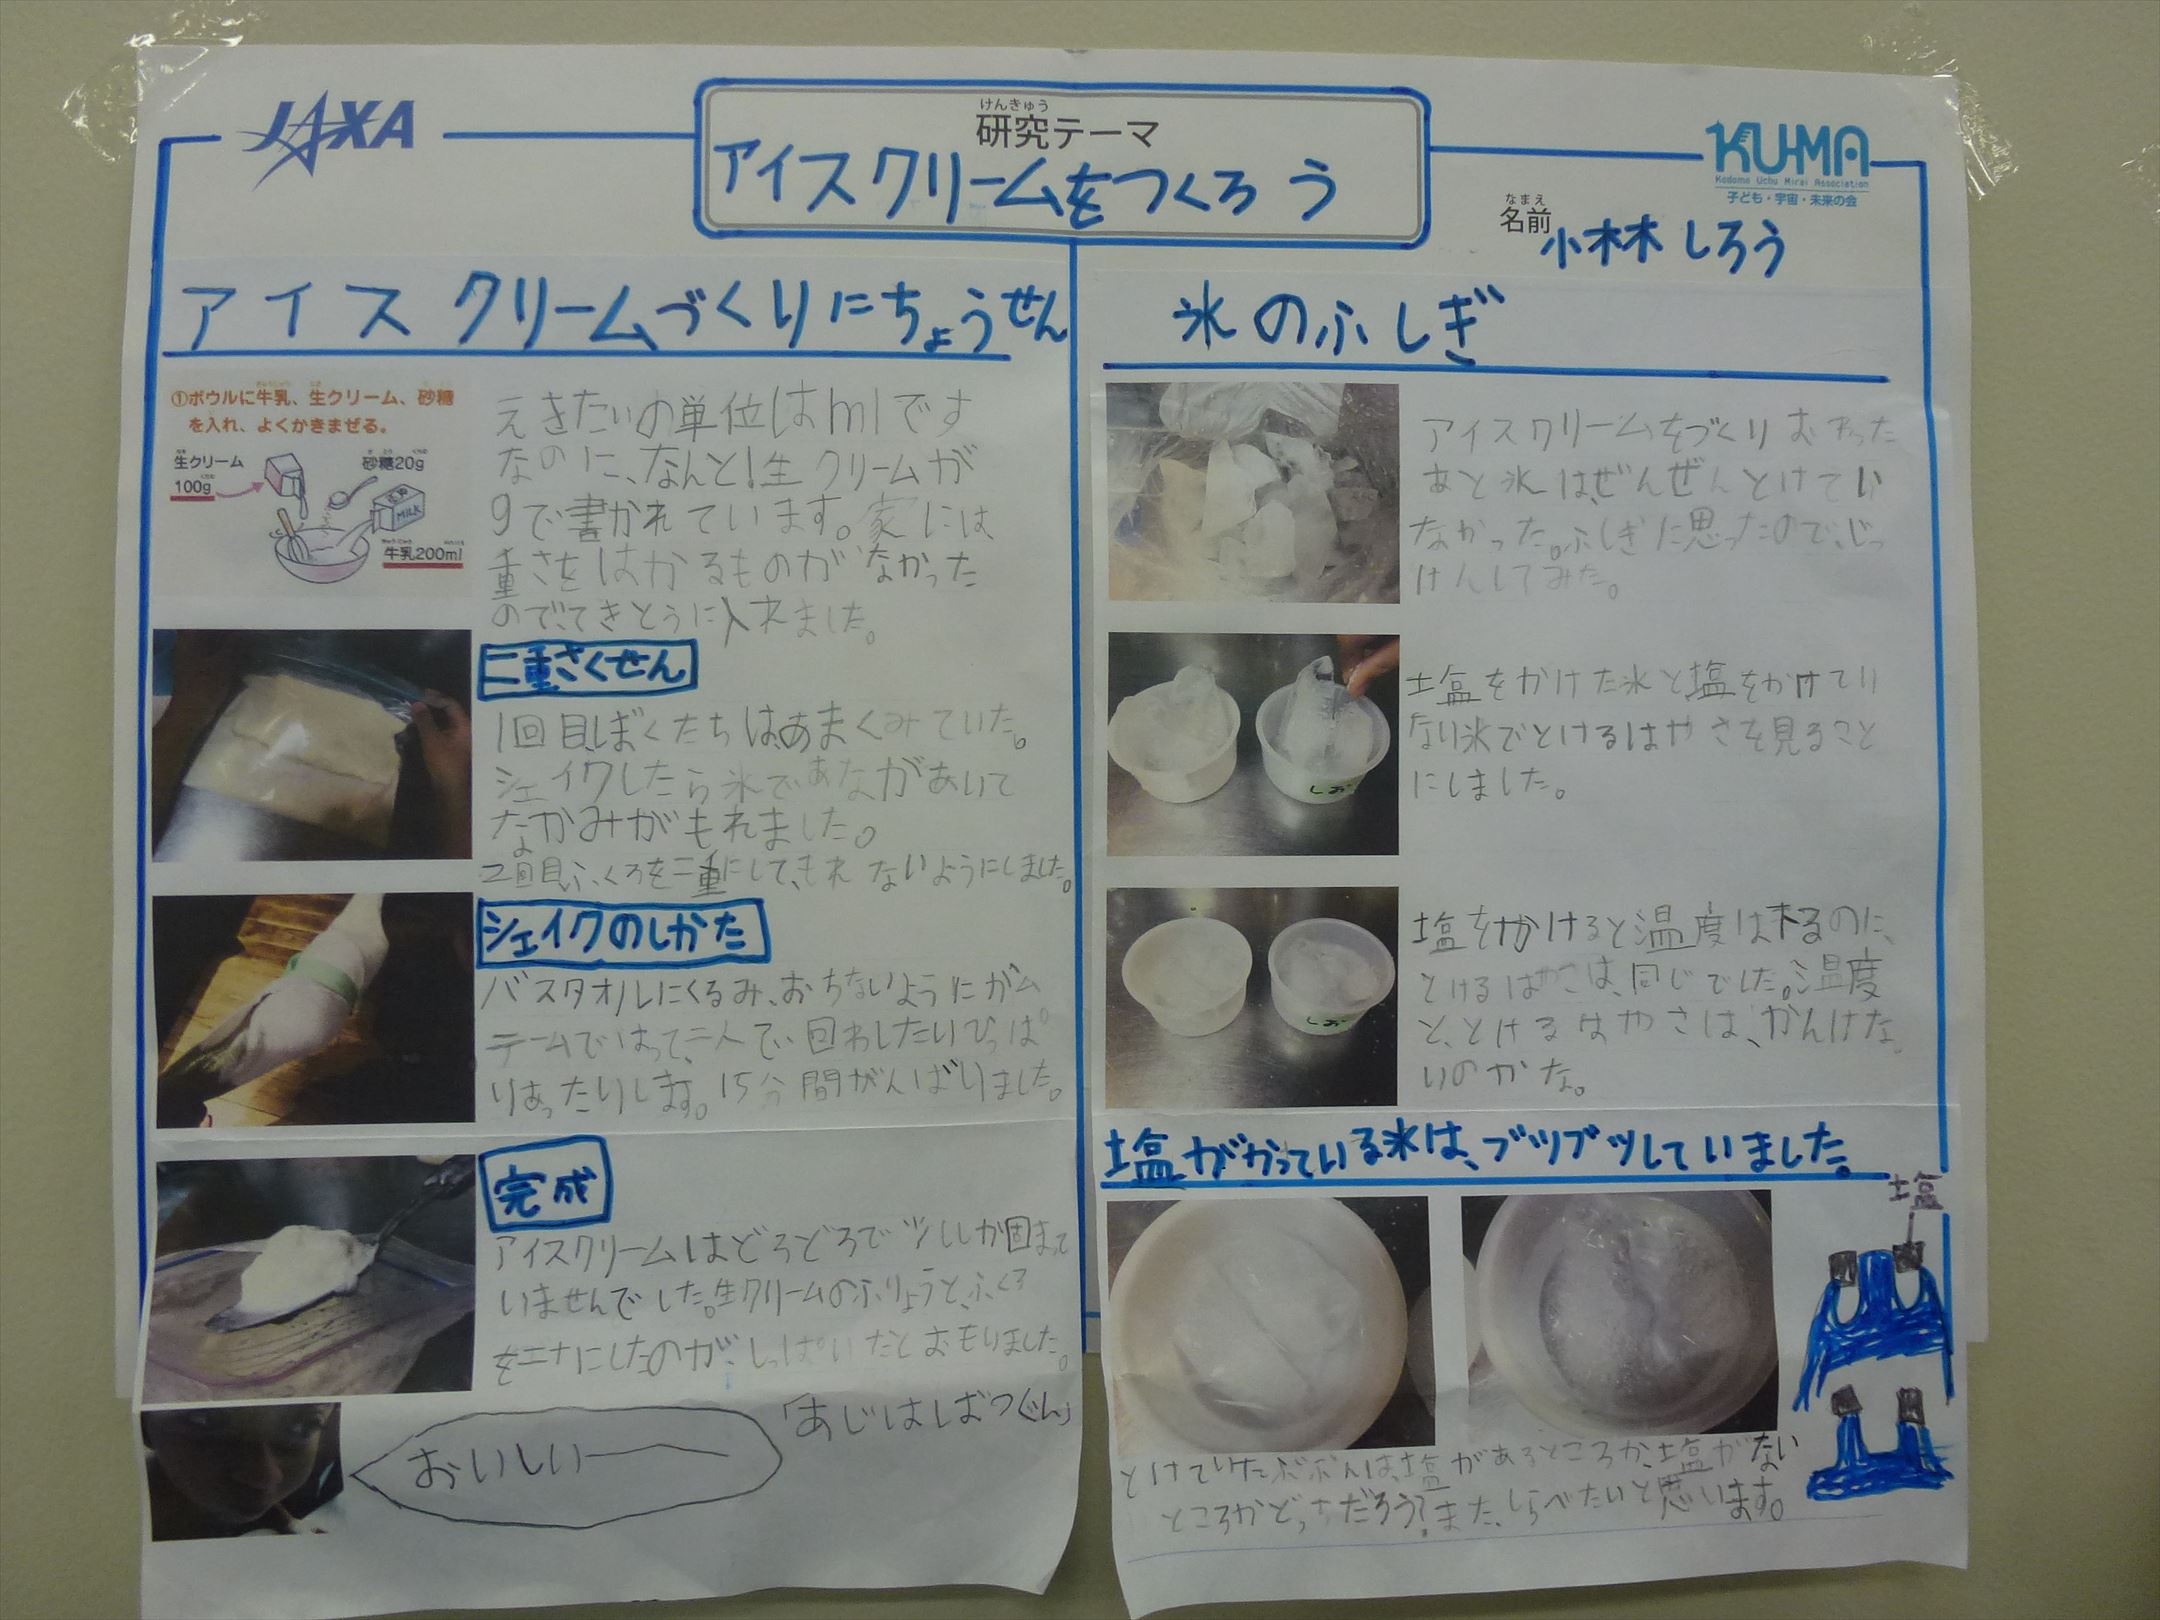 JAXA
けんきゅう
研究テーマ
アイスクリームをつくろう
KU-MA
Kodomo Uchu Mirai Association
子ども・宇宙・未来の会
なまえ
名前 小林しろう
アイスクリームづくりにちょうせん
①ボウルに牛乳、生クリーム、砂糖
を入れ、よくかきまぜる。
生クリーム
100g
砂糖20g
MILK
牛乳200ml
えきたいの単位はmlです
なのに、なんと!生クリームが
gで書かれています。家には、
重さをはかるものがなかった
のでてきとうに入れました。
二重さくせん
1回目ぼくたちは、あまくみていた。
シェイクしたら氷であながあいて
なかみがもれました。
2回目ふくろを二重にして、もれないようにしました。
シェイクのしかた
バスタオルにくるみ、おちないようにガム
テームではって、二人で、回わしたいひっぱ
りあったりします。15分間がんばりました。
完成
アイスクリームはどろどろで少ししか固まって
いませんでした。生クリームのふりょうと、ふくろ
を二十にしたのが、しっぱいだとおもいました。
おいしいー
「あじはしばつぐん」
氷のふしぎ
アイスクリームをづくりおわった
あと氷は、ぜんぜんとけてい
なかった。ふしぎに思ったので、じっ
けんしてみた。
塩をかけた氷と塩をかけてい
ない氷でとけるはやさを見ること
にしました。
しお
塩をかけると温度は下るのに、
とけるはやさは、同じでした。温度
と、とけるはやさは、かんけな
いのかな。
しお
塩がかっている氷は、ブツブツしていました。
塩
とけていたぶぶんは、塩があるところか、塩がない
ところかどっちだろう?また、しらべたいと思います。